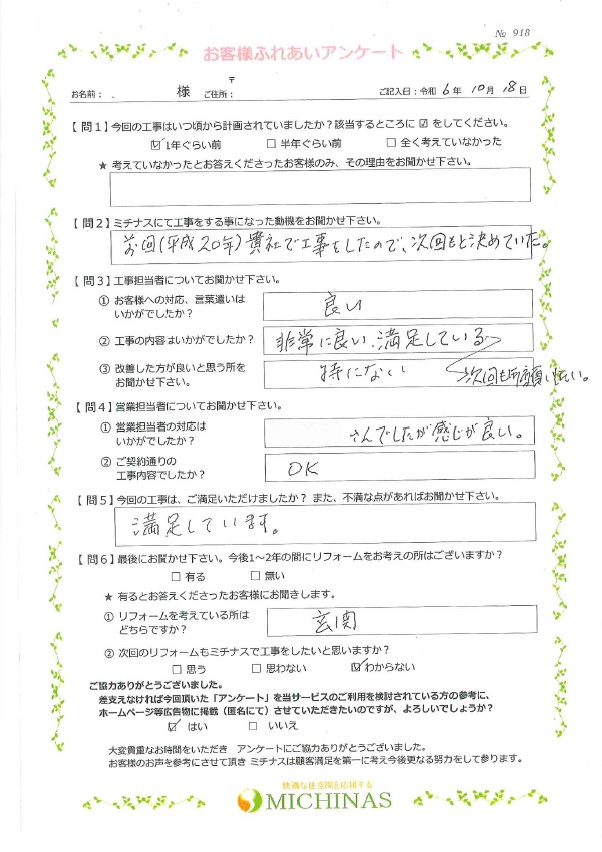 № 918
お客様ふれあいアンケート
お名前： 様 〒ご住所： ご記入日：令和 6年 10月 18日
【 問１】今回の工事はいつ頃から計画されていましたか？該当するところに ☑ をしてください。
☑ 1年ぐらい前 □ 半年ぐらい前 □ 全く考えていなかった
★ 考えていなかったとお答えくださったお客様のみ、その理由をお聞かせ下さい。
【 問２】ミチナスにて工事をする事になった動機をお聞かせ下さい。
前回(平成20年)貴社で工事をしたので、次回もと決めていた。
【 問３】工事担当者についてお聞かせ下さい。
① お客様への対応、言葉遣いは
いかがでしたか？
良い
② 工事の内容はいかがでしたか？
非常に良い、満足している
③ 改善した方が良いと思う所を
お聞かせ下さい。
特にない
次回もお願いしたい。
【 問４】営業担当者についてお聞かせ下さい。
① 営業担当者の対応は
いかがでしたか？
さんでしたが感じが良い。
② ご契約通りの
工事内容でしたか？
OK
【 問５】今回の工事は、ご満足いただけましたか？ また、不満な点があればお聞かせ下さい。
満足しています。
【 問６】最後にお聞かせ下さい。今後1～2年の間にリフォームをお考えの所はございますか？
□ 有る □ 無い
★ 有るとお答えくださったお客様にお聞きします。
① リフォームを考えている所は
どちらですか？
玄関
② 次回のリフォームもミチナスで工事をしたいと思いますか？
□ 思う □ 思わない ☑ わからない
ご協力ありがとうございました。
差支えなければ今回頂いた「アンケート」を当サービスのご利用を検討されている方の参考に、
ホームページ等広告物に掲載（匿名にて）させていただきたいのですが、よろしいでしょうか？
☑ はい □ いいえ
大変貴重なお時間をいただき アンケートにご協力ありがとうございました。
お客様のお声を参考にさせて頂き ミチナスは顧客満足を第一に考え今後更なる努力をして参ります。
快適な住空間を応援する
MICHINAS